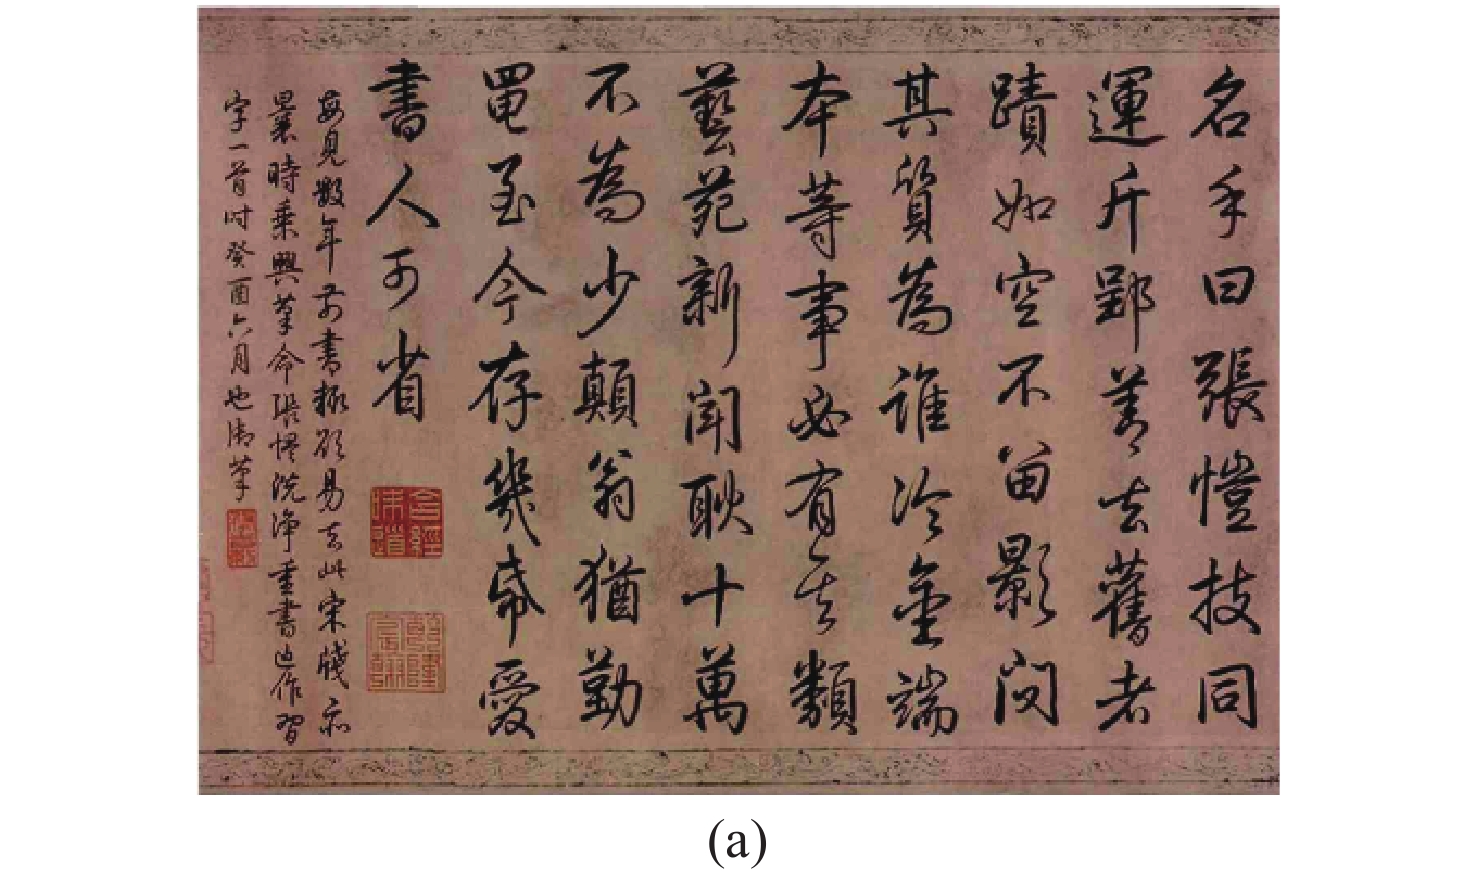 名手曰張愷技同
運斤郢善去舊者
蹟如空不留影問
其質為誰冷金端
本等事必有其類
藝苑新聞耿十萬
不為少顛翁猶勤
黽至今存幾希愛
書人可省
每見數年前書輒欲易去此宋牋亦
曩時乘興筆命張愷洗淨重書作習
字一首時癸酉六月也御筆
含經味道
(a)